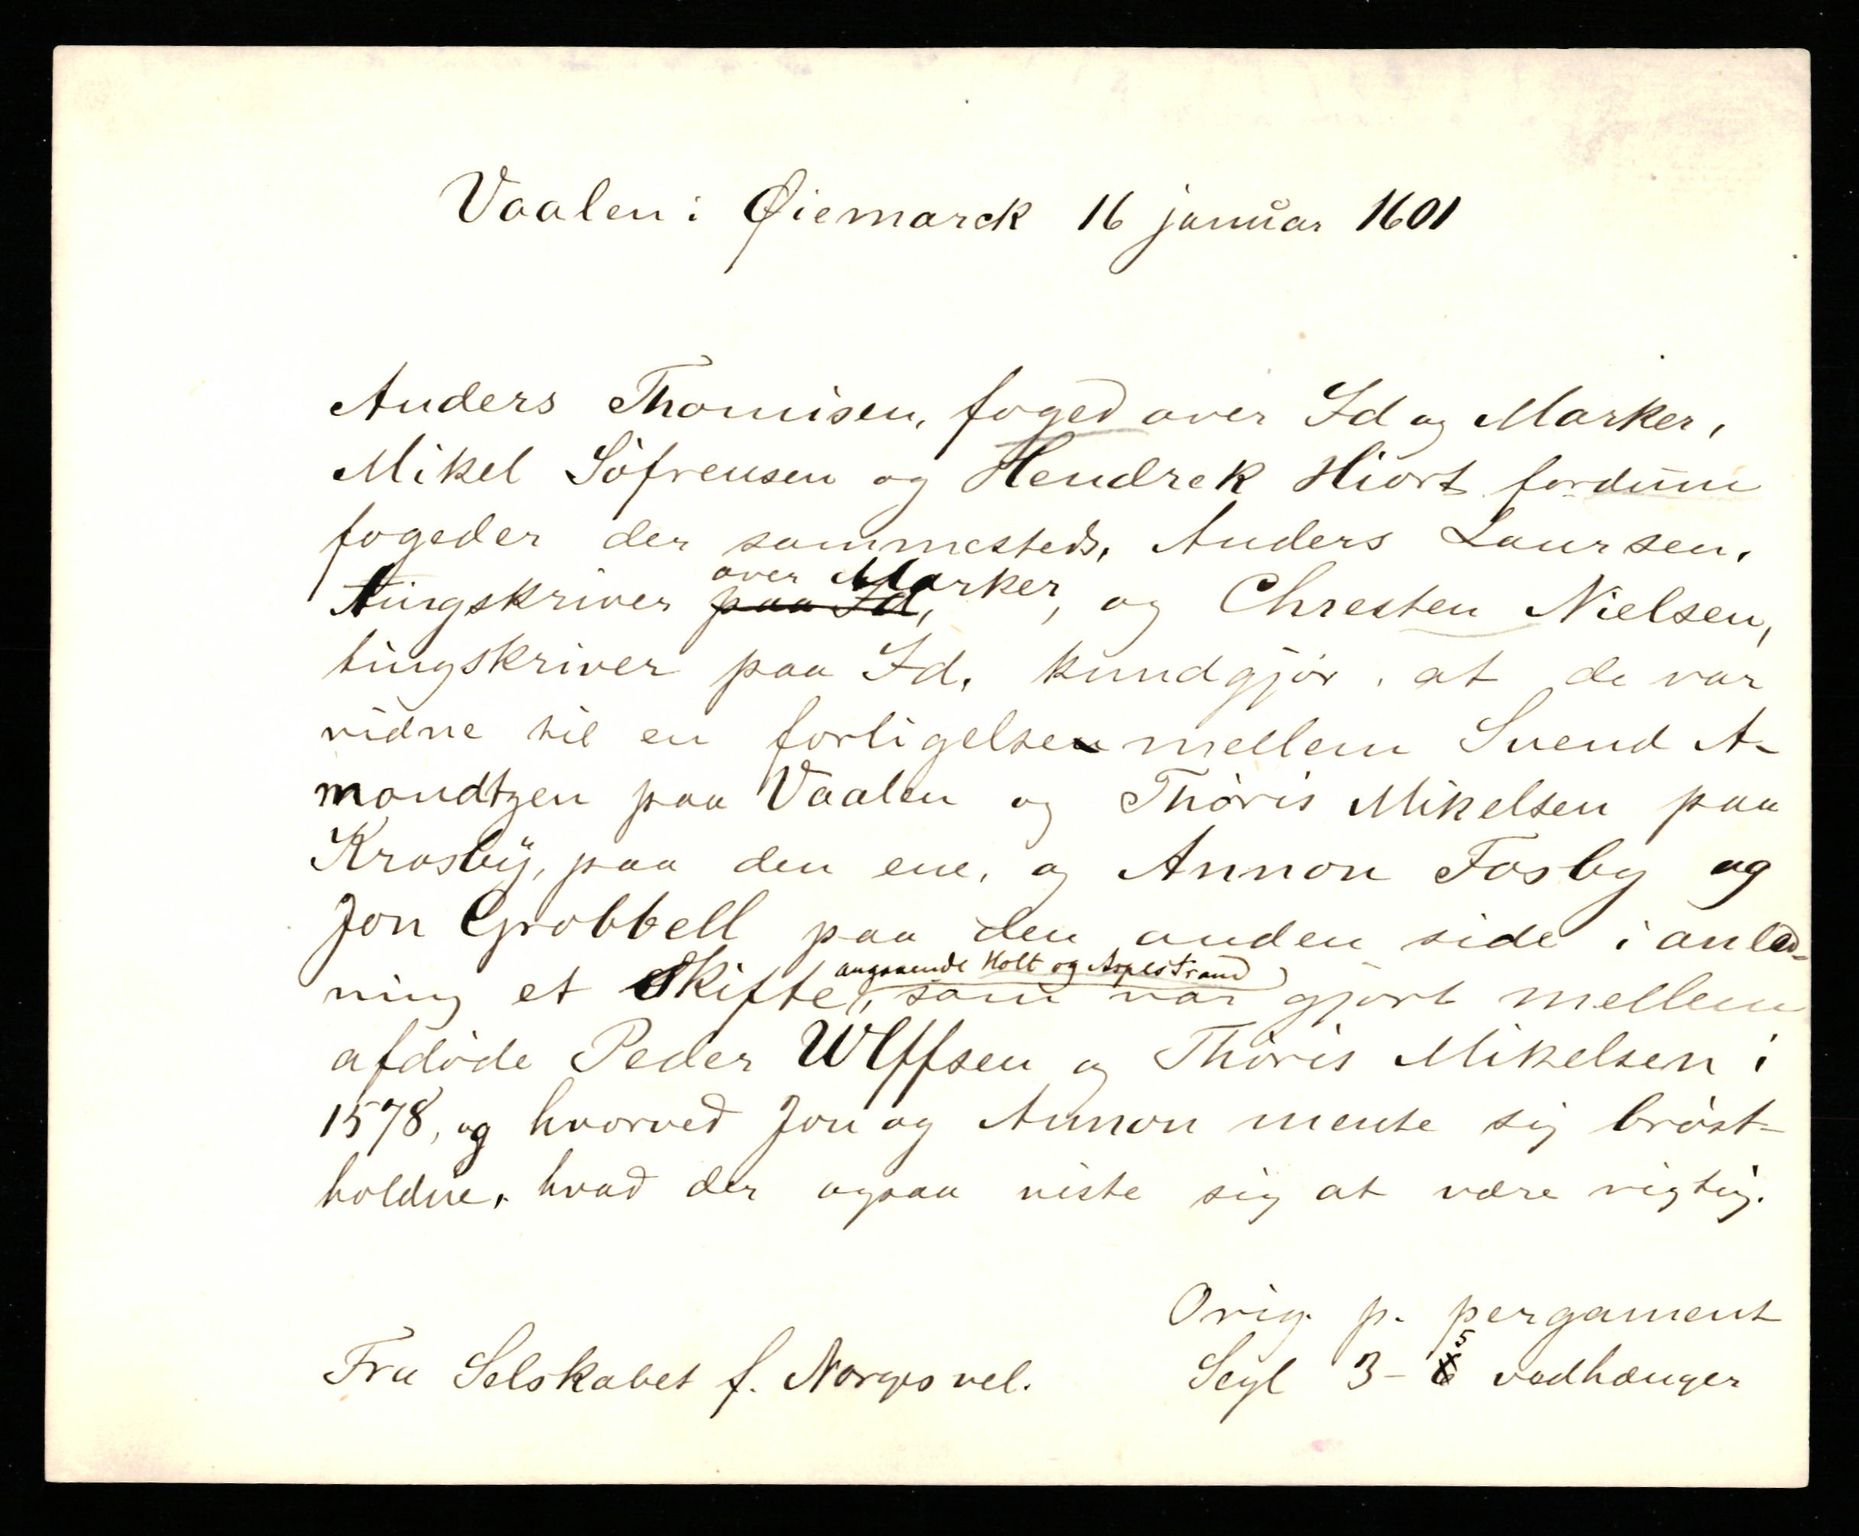 Vaalen i Øiemarck 16 januar 1601
Anders Thomisen, foged over Id og Marker,
Mikel Söfrensen og Hendrek Hiort fordum
fogeder der sammesteds, Anders Laursen,
tingskriver paa Id, over Marker, og Chresten Nielsen,
tingskriver paa Id, kundgjör, at de var
vidne til en forligelse mellem Svend A-
mondtzen paa Vaalen og Thöris Mikelsen paa
Krosbÿ, paa den ene, og Annon Fosby og
Jon Grobbell paa den anden side i anled-
ning et Skifte angaaende Holt og Aspestrand, som var gjort mellem
afdöde Peder Wlffsen og Thöris Mikelsen i
1578, og hvorved Jon og Annon mente sig bröst-
holdne, hvad der ogsaa viste sig at være rigtig.
Orig. p. pergament
Fra Selskabet f. Norges vel.
Segl 3-5 vedhænger